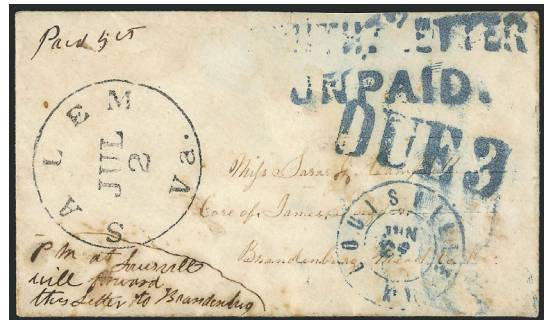 Paid 5cts
LETTER
UNPAID.
DUE 3
SALEM Va.
JUL
2
Miss Sarah J. Campbell
Care of James
Brandenburg Mead Co. K
LOUISVILLE
KY
P M at Louisvill
will forward
this Letter to Brandenburg